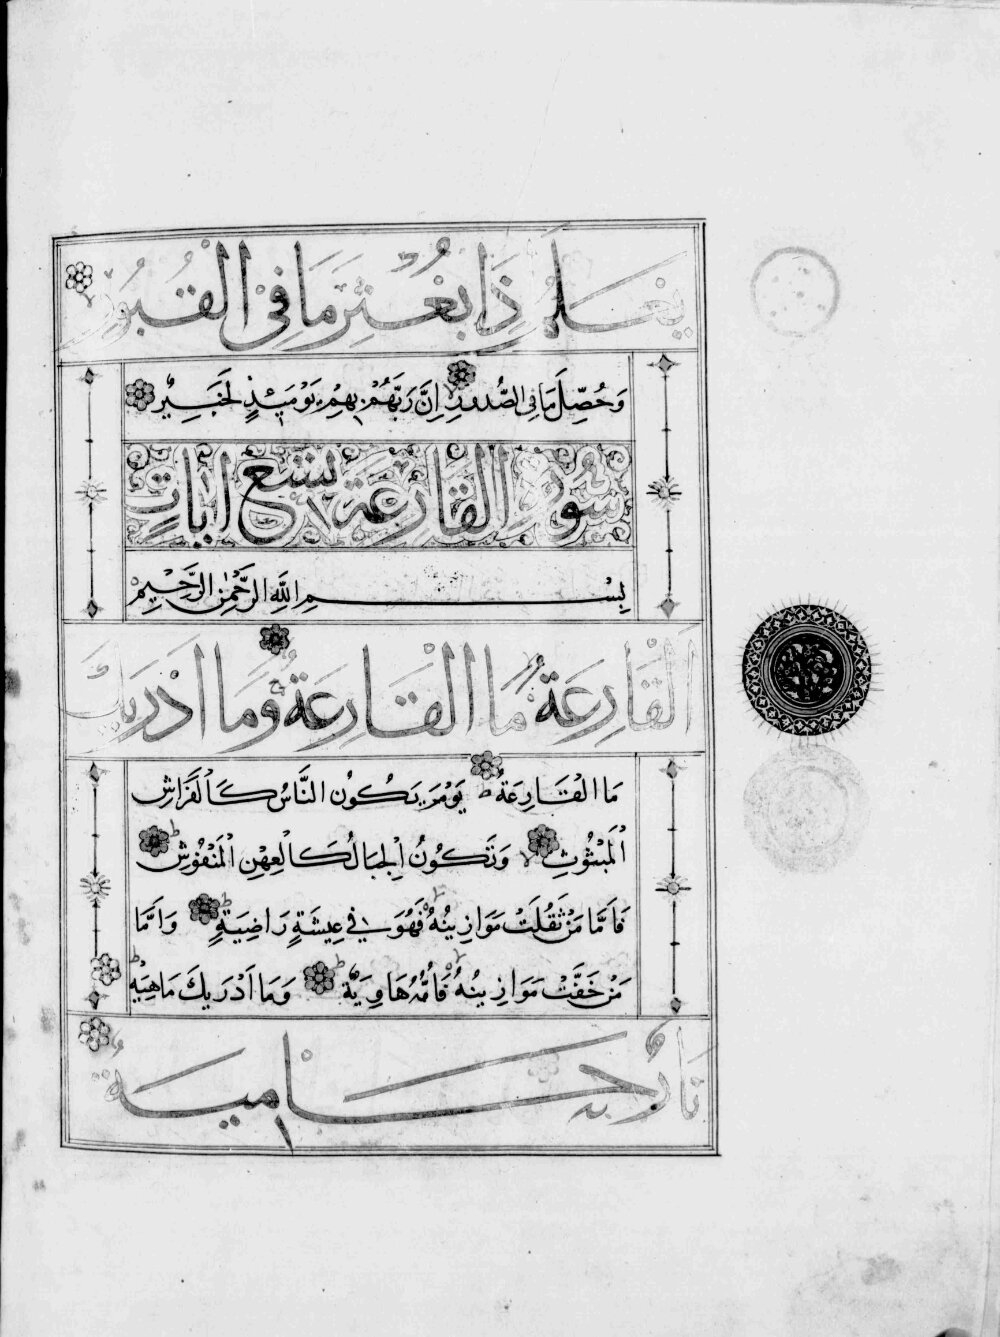 يَعْلَمُ اِذَا بُعْثِرَ مَا فِى الْقُبُورِ
وَحُصِّلَ مَا فِى الصُّدُورِ اِنَّ رَبَّهُمْ بِهِمْ يَوْمَئِذٍ لَخَبِيرٌ
سُورَةُ الْقَارِعَةِ تِسْعُ اٰيَاتٍ
بِسْمِ اللّٰهِ الرَّحْمٰنِ الرَّحِيمِ
اَلْقَارِعَةُ مَا الْقَارِعَةُ وَمَا اَدْرٰيكَ
مَا الْقَارِعَةُ يَوْمَ يَكُونُ النَّاسُ كَالْفَرَاشِ
الْمَبْثُوثِ وَتَكُونُ الْجِبَالُ كَالْعِهْنِ الْمَنْفُوشِ
فَاَمَّا مَنْ ثَقُلَتْ مَوَازِينُهُ فَهُوَ فِى عِيشَةٍ رَاضِيَةٍ وَاَمَّا
مَنْ خَفَّتْ مَوَازِينُهُ فَاُمُّهُ هَاوِيَةٌ وَمَا اَدْرٰيكَ مَاهِيَهْ
نَارٌ حَامِيَةٌ